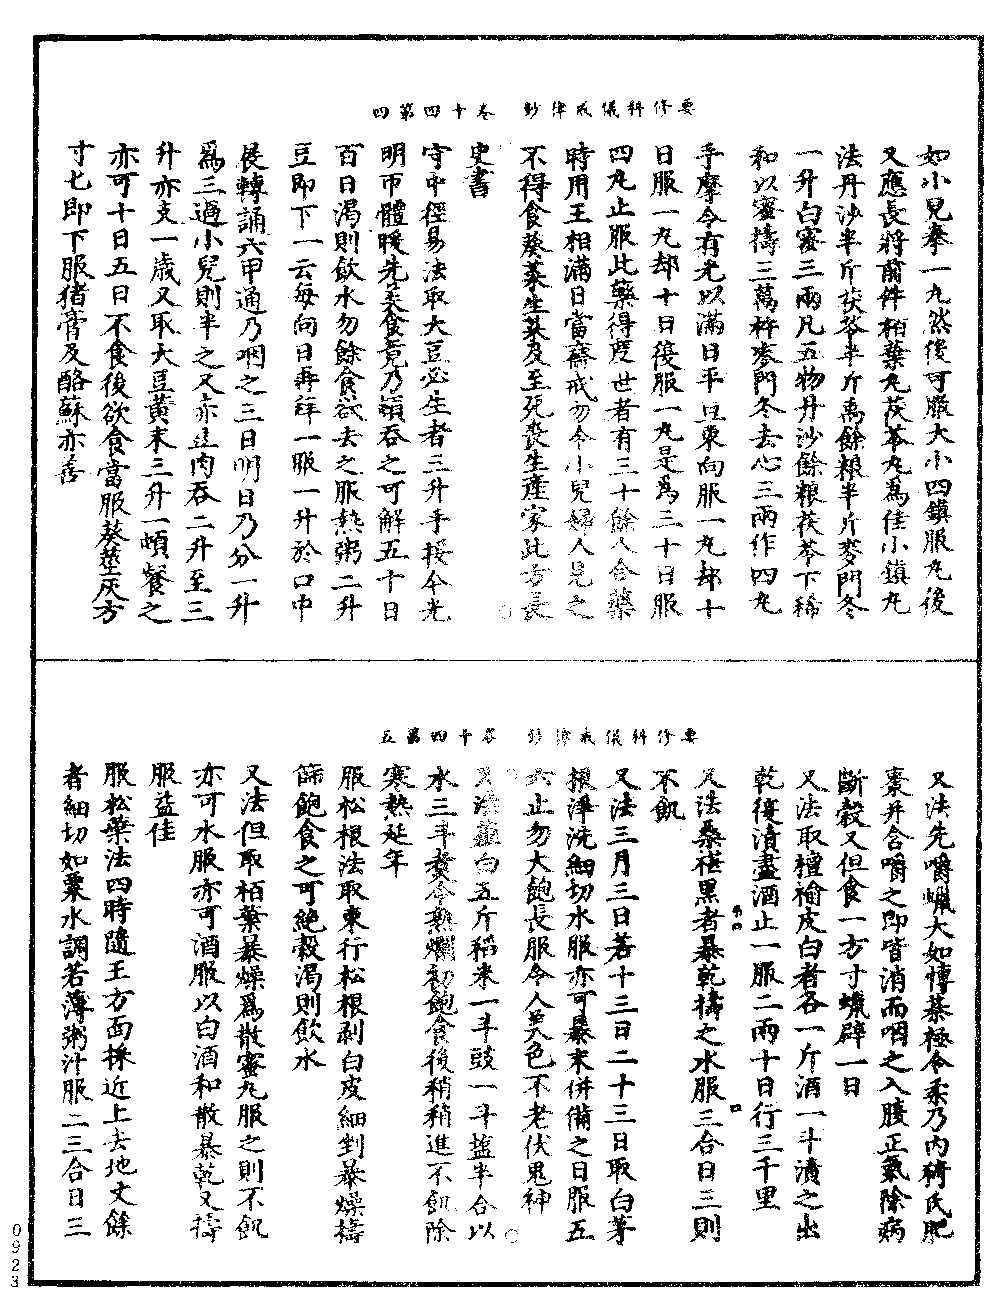 要修科儀戒律鈔　卷十四第四
如小兒拳一丸然後可服大小四鎮服丸後
又應長將前件栢葉丸茯苓丸爲佳小鎮丸
法丹沙半斤茯苓半斤禹餘粮半斤麥門冬
一升白蜜三兩凡五物丹沙餘粮茯苓下稀
和以蜜擣三萬杵麥門冬去心三兩作四丸
手摩令有光以滿日平旦東向服一丸却十
日服一丸却十日復服一丸是爲三十日服
四丸止服此藥得度世者有三十餘人合藥
時用王相滿日當齋戒勿令小兒婦人見之
不得食葵菜生菜及至死喪生産家此方長
史書
守中徑易法取大豆必生者三升手挼令光
明帀體暖先美食竟乃頓吞之可解五十日
百日渴則飲水勿餘食欲去之服熱粥二升
豆即下一云每向日再拜一服一升於口中
長轉誦六甲通乃咽之三日明日乃分一升
爲三過小兒則半之又亦生肉吞二升至三
升亦支一歲又取大豆黃末三升一頓餐之
亦可十日五日不食後欲食當服葵莖灰方
寸匕即下服猪膏及酪蘇亦善
要修科儀戒律鈔　卷十四第五
又法先嚼蠟大如博棊極令柔乃內稀氏肥
棗并合嚼之即皆消而咽之入腹正氣除病
斷穀又但食一方寸蠟辟一日
又法取檀榆皮白者各一斤酒一斗漬之出
乾復漬盡酒止一服二兩十日行三千里
又法桑椹黑者暴乾擣之水服三合日三則
不飢
又法三月三日若十三日二十三日取白茅
根淨洗細切水服亦可暴末併備之日服五
六止勿大飽長服令人美色不老伏鬼神
又法薤白五斤稻米一斗豉一斗鹽半合以
水三斗煑令熟爛初飽食後稍稍進不飢除
寒熱延年
服松根法取東行松根剥白皮細剉暴燥擣
篩飽食之可絶穀渴則飲水
又法但取栢葉暴燥爲散蜜丸服之則不飢
亦可水服亦可酒服以白酒和散暴乾又擣
服益佳
服松葉法四時隨王方面採近上去地丈餘
者細切如粟水調若薄粥汁服二三合日三
0923